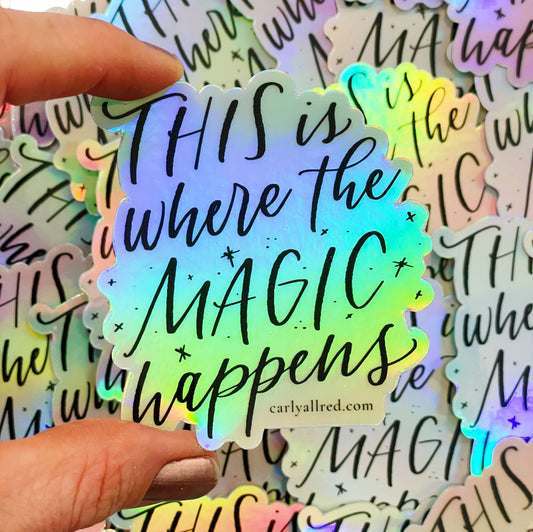 THIS is
where the
MAGIC
happens
carlyallred.com